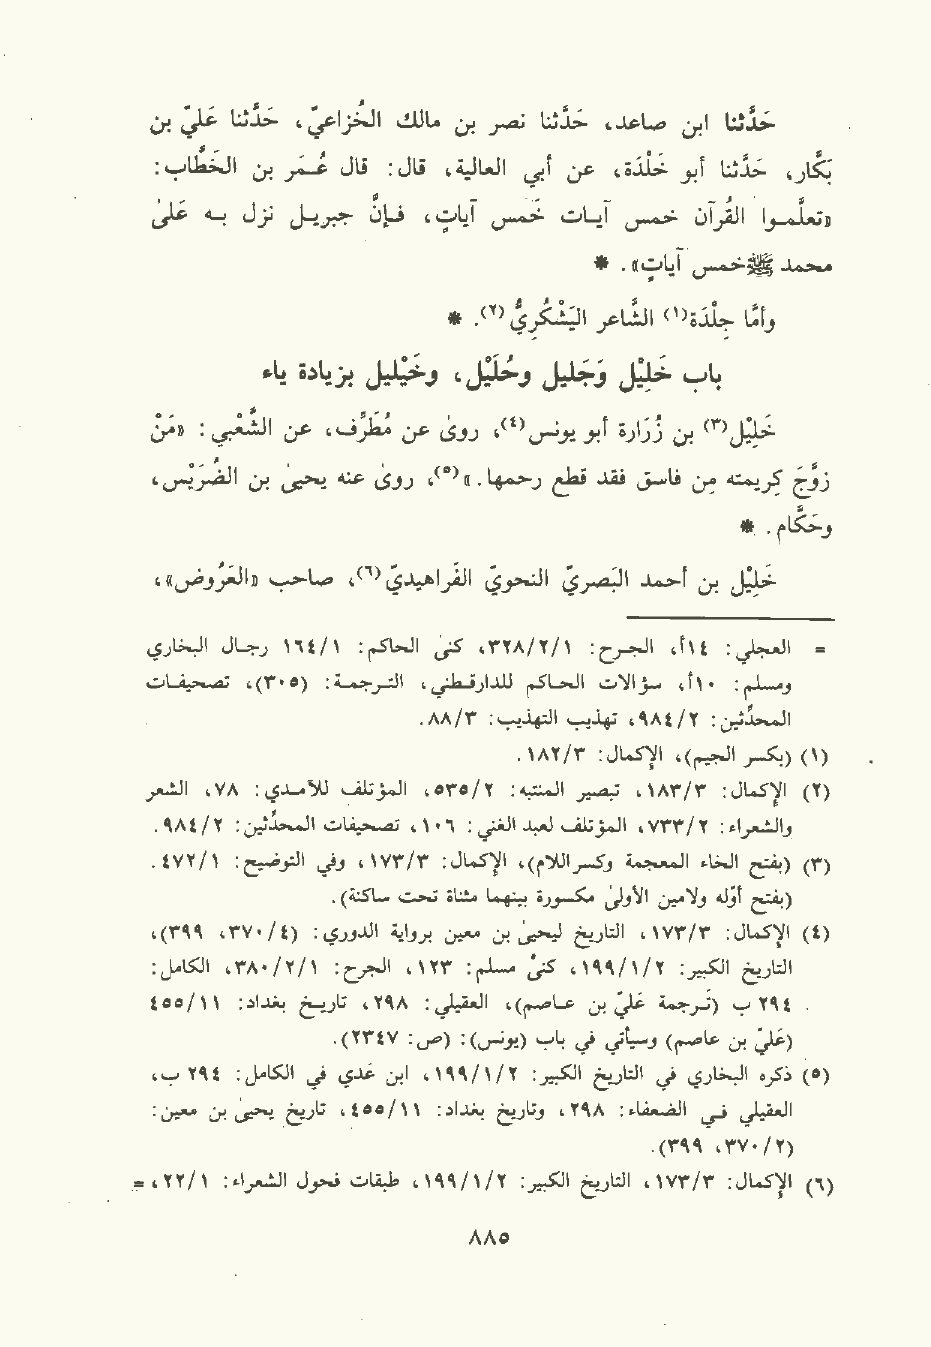 حَدَّثنا ابن صاعد، حَدَّثنا نصر بن مالك الخُزاعيّ، حَدَّثنا عَليّ بن
بَكَّار، حَدَّثنا أبو خَلْدَة، عن أبي العالية، قال: قال عُمَر بن الخَطَّاب:
«تعلَّموا القُرآن خمس آيات خمس آياتٍ، فإنَّ جبريل نزل به عَلىٰ
محمد ﷺ خمس آياتٍ». *
وأمَّا جِلْدَة(١) الشَّاعر اليَشْكُرِيُّ(٢). *
باب خَلِيْل وَجَليل وحُلَيْل، وخَيْليل بزيادة ياء
خَلِيْل(٣) بن زُرَارة أبو يونس(٤)، روىٰ عن مُطَرِّف، عن الشَّعْبي: «مَنْ
زوَّجَ كِريمته مِن فاسق فقد قطع رحمها.»(٥)، روىٰ عنه يحيىٰ بن الضُرَيْس،
وحَكَّام. *
خَلِيْل بن أحمد البَصريّ النحويّ الفَراهيديّ(٦)، صاحب «العَرُوض»،
= العجلي: ١٤أ، الجرح: ٣٢٨/٢/١، كنىٰ الحاكم: ١٦٤/١ رجال البخاري
ومسلم: ١٠أ، سؤالات الحاكم للدارقطني، الترجمة: (٣٠٥)، تصحيفات
المحدِّثين: ٩٨٤/٢، تهذيب التهذيب: ٨٨/٣.
(١) (بكسر الجيم)، الإكمال: ١٨٢/٣.
(٢) الإكمال: ١٨٣/٣، تبصير المنتبه: ٥٣٥/٢، المؤتلف للآمدي: ٧٨، الشعر
والشعراء: ٧٣٣/٢، المؤتلف لعبد الغني: ١٠٦، تصحيفات المحدِّثين: ٩٨٤/٢.
(٣) (بفتح الخاء المعجمة وكسر اللام)، الإكمال: ١٧٣/٣، وفي التوضيح: ٤٧٢/١.
(بفتح أوّله ولامين الأولىٰ مكسورة بينهما مثناة تحت ساكنة).
(٤) الإكمال: ١٧٣/٣، التاريخ ليحيىٰ بن معين برواية الدوري: (٣٧٠/٤، ٣٩٩)،
التاريخ الكبير: ١٩٩/١/٢، كنىٰ مسلم: ١٢٣، الجرح: ٣٨٠/٢/١، الكامل:
٢٩٤ ب (تَرجمة عَليّ بن عاصم)، العقيلي: ٢٩٨، تاريخ بغداد: ٤٥٥/١١
(عَليّ بن عاصم) وسيأتي في باب (يونس): (ص: ٢٣٤٧).
(٥) ذكره البخاري في التاريخ الكبير: ١٩٩/١/٢، ابن عَدي في الكامل: ٢٩٤ ب،
العقيلي في الضعفاء: ٢٩٨، وتاريخ بغداد: ٤٥٥/١١، تاريخ يحيىٰ بن معين:
(٣٧٠/٢، ٣٩٩).
(٦) الإكمال: ١٧٣/٣، التاريخ الكبير: ١٩٩/١/٢، طبقات فحول الشعراء: ٢٢/١، =
٨٨٥